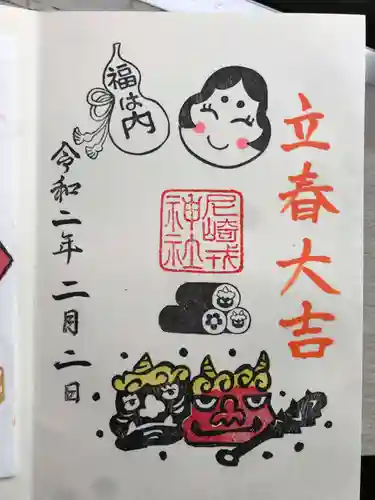 立春大吉
福は内
尼崎戎
神社
令和二年 二月二日